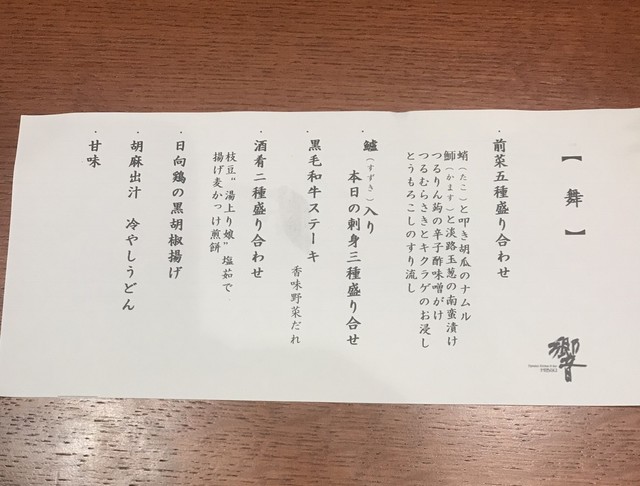 【 舞 】
・前菜五種盛り合わせ
蛸（たこ）と叩き胡瓜のナムル
鰤（かます）と淡路玉葱の南蛮漬け
つるりん蒟の辛子酢味噌がけ
つるむらさきとキクラゲのお浸し
とうもろこしのすり流し
・鱸（すずき）入り
本日の刺身三種盛り合せ
・黒毛和牛ステーキ
香味野菜だれ
・酒肴二種盛り合わせ
枝豆“湯上り娘”塩茹で
揚げ麦かっけ煎餅
・日向鶏の黒胡椒揚げ
・胡麻出汁 冷やしうどん
・甘味
響